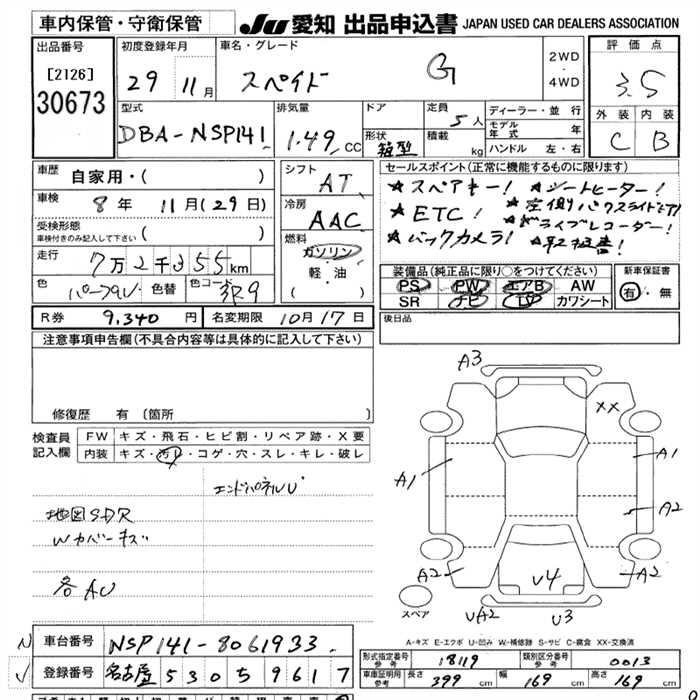 車内保管・守衛保管 JU 愛知 出品申込書 JAPAN USED CAR DEALERS ASSOCIATION
出品番号 [2126] 30673
初度登録年月 29 11月
車名・グレード スペイド G
2WD・4WD
評価点 3.5
外装 C 内装 B
型式 DBA-NSP141
排気量 1.49 CC
ドア
形状 箱型
定員 5人
積載 kg
ディーラー・並行
モデル年式 年
ハンドル 左・右
車歴 自家用・( )
車検 8年 11月(29日)
受検形態 ( )
車検付きのみ記入して下さい
走行 7万2千355km
色 パープル 色替 色コード 3R9
シフト AT
冷房 AAC
燃料 ガソリン・軽・油 ( )
セールスポイント(正常に機能するものに限ります)
★スペアキー! ★シートヒーター!
★ETC! ★左側パワスライドドア!
★ドライブレコーダー!
★バックカメラ!
装備品(純正品に限り○をつけてください)
PS PW エアB AW
SR ナビ TV カワシート
新車保証書 有・無
R券 9,340円 名変期限 10月17日
後日品
注意事項申告欄(不具合内容等は具体的に記入して下さい)
修復歴 有 〔箇所 〕
検査員記入欄
FW キズ・飛石・ヒビ割・リペア跡・X要
内装 キズ・汚レ・コゲ・穴・スレ・キレ・破レ
エンドパネルU
地図SDR
Wカバーキズ
各AU
A3
XX
A1
A1
A2
A2
U4
A2
スペア
UA2
U3
A-キズ E-エクボ U-凹み W-補修跡 S-サビ C-腐食 XX-交換済
N 車台番号 NSP141-8061933
✓ 登録番号 名古屋 530 5 9617
形式指定番号 参考 18119 類別区分番号 参考 0013
車庫証明用 参考 長さ 399 cm 幅 169 cm 高さ 169 cm